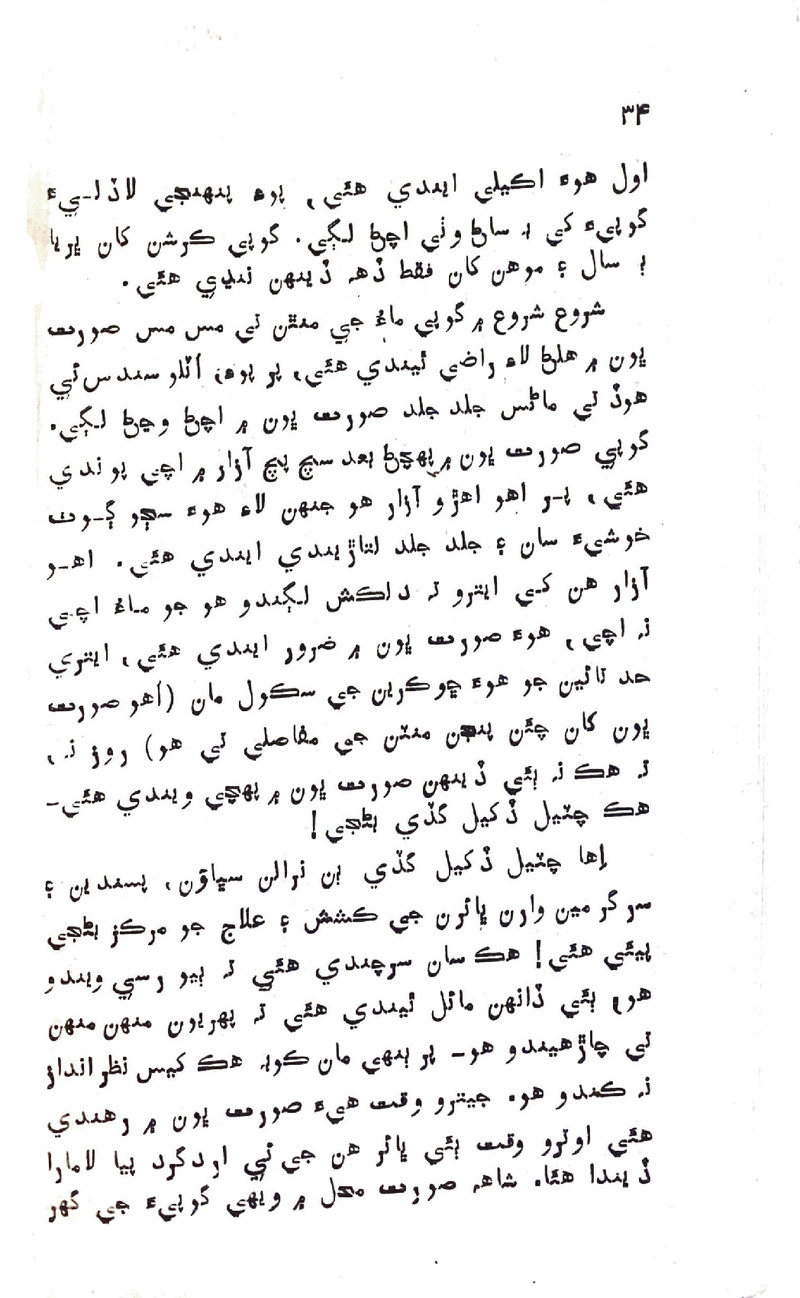 ۳۴
اول هوءَ اڪيلي ايندي هئي، پوءِ پنهنجي لاڏلـيءَ
گوپيءَ کي بہ ساڻ وٺي اچڻ لڳي. گوپي ڪرشن کان ڀريا
ٻہ سال ۽ موهن کان فقط ڏهہ ڏينهن ننڍي هئي.
شروع شروع ۾ گوپي ماءُ جي منٿن تي مس مس صورت
ڀون ۾ هلڻ لاءِ راضي ٿيندي هئي، پر پوءِ، اُٽلو سندس ئي
هوڏ تي ماڻس جلد جلد صورت ڀون ۾ اچڻ وڃڻ لڳي.
گوپي صورت ڀون ۾ پهچڻ بعد سچ پچ آزار ۾ اچي پوندي
هئي، پـر اهو اهڙو آزار هو جنهن لاءِ هوءَ سڄو ڳـوٺ
خوشيءَ سان ۽ جلد جلد لتاڙيندي ايندي هئي. اهـو
آزار هن کـي ايترو تہ دلڪش لڳندو هو جو مـاءُ اچـي
نہ اچي، هوءَ صورت ڀون ۾ ضرور ايندي هئي، ايتري
حد تائين جو هوءَ ڇوڪرين جي سڪول مان (اُهو صورت
ڀون کان چئن پنجن منٽن جي مفاصلي تي هو) روز نہ،
تہ هڪ نہ ٻئي ڏينهن صورت ڀون ۾ پهچي ويندي هئي-
هڪ چٽيل ڏکيل گڏي بڻجي!
اِها چٽيل ڏکيل گڏي ٻن نرالن سڀاؤن، پسندين ۽
سرگرمين وارن ڀائرن جي ڪشش ۽ علاج جو مرڪز بڻجي
پيئي هئي! هڪ سان سرچندي هئي تہ ٻيو رسي ويندو
هو، ٻئي ڏانهن مائل ٿيندي هئي تہ پهريون منهن منهن
تي چاڙهيندو هو- پر ٻنهي مان ڪوبہ هڪ کيس نظر انداز
نہ ڪندو هو. جيترو وقت هيءَ صورت ڀون ۾ رهندي
هئي اوترو وقت ٻئي ڀائر هن جي ئي اردگرد پيا لامارا
ڏيندا هئا. شاهہ صورت محل ۾ ويهي گوپيءَ جي گهر